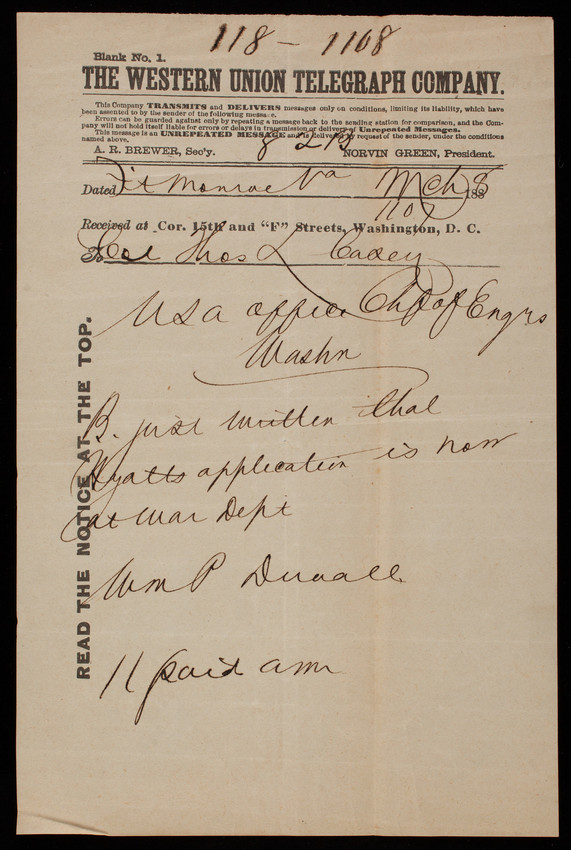 118 - 1108
Blank No. 1.
THE WESTERN UNION TELEGRAPH COMPANY.
This Company TRANSMITS and DELIVERS messages only on conditions, limiting its liability, which have
been assented to by the sender of the following message.
Errors can be guarded against only by repeating a message back to the sending station for comparison, and the Com-
pany will not hold itself liable for errors or delays in transmission or delivery of Unrepeated Messages.
This message is an UNREPEATED MESSAGE and is delivered by request of the sender, under the conditions
named above.
A. R. BREWER, Sec'y.
NORVIN GREEN, President.
Dated Ft Monroe Va Mch 8 188
Received at Cor. 15th and "F" Streets, Washington, D. C.
To Col Thos L Casey
USA office Chf of Engrs
Washn
B. just written that
Hyatts application is now
at War Dept
Wm P Duvall
11 paid
READ THE NOTICE AT THE TOP.